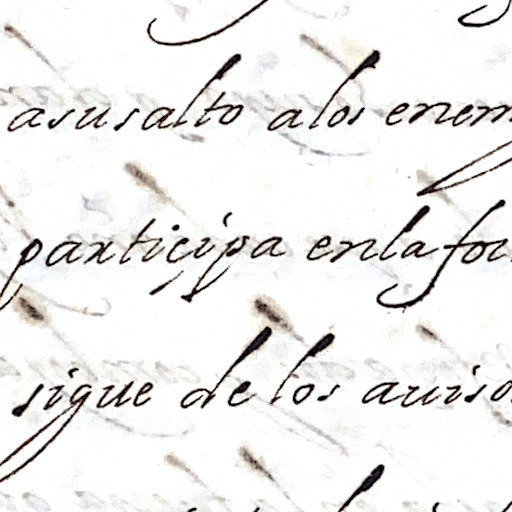 asusalto alos enem
participa enla for
sigue de los auiso